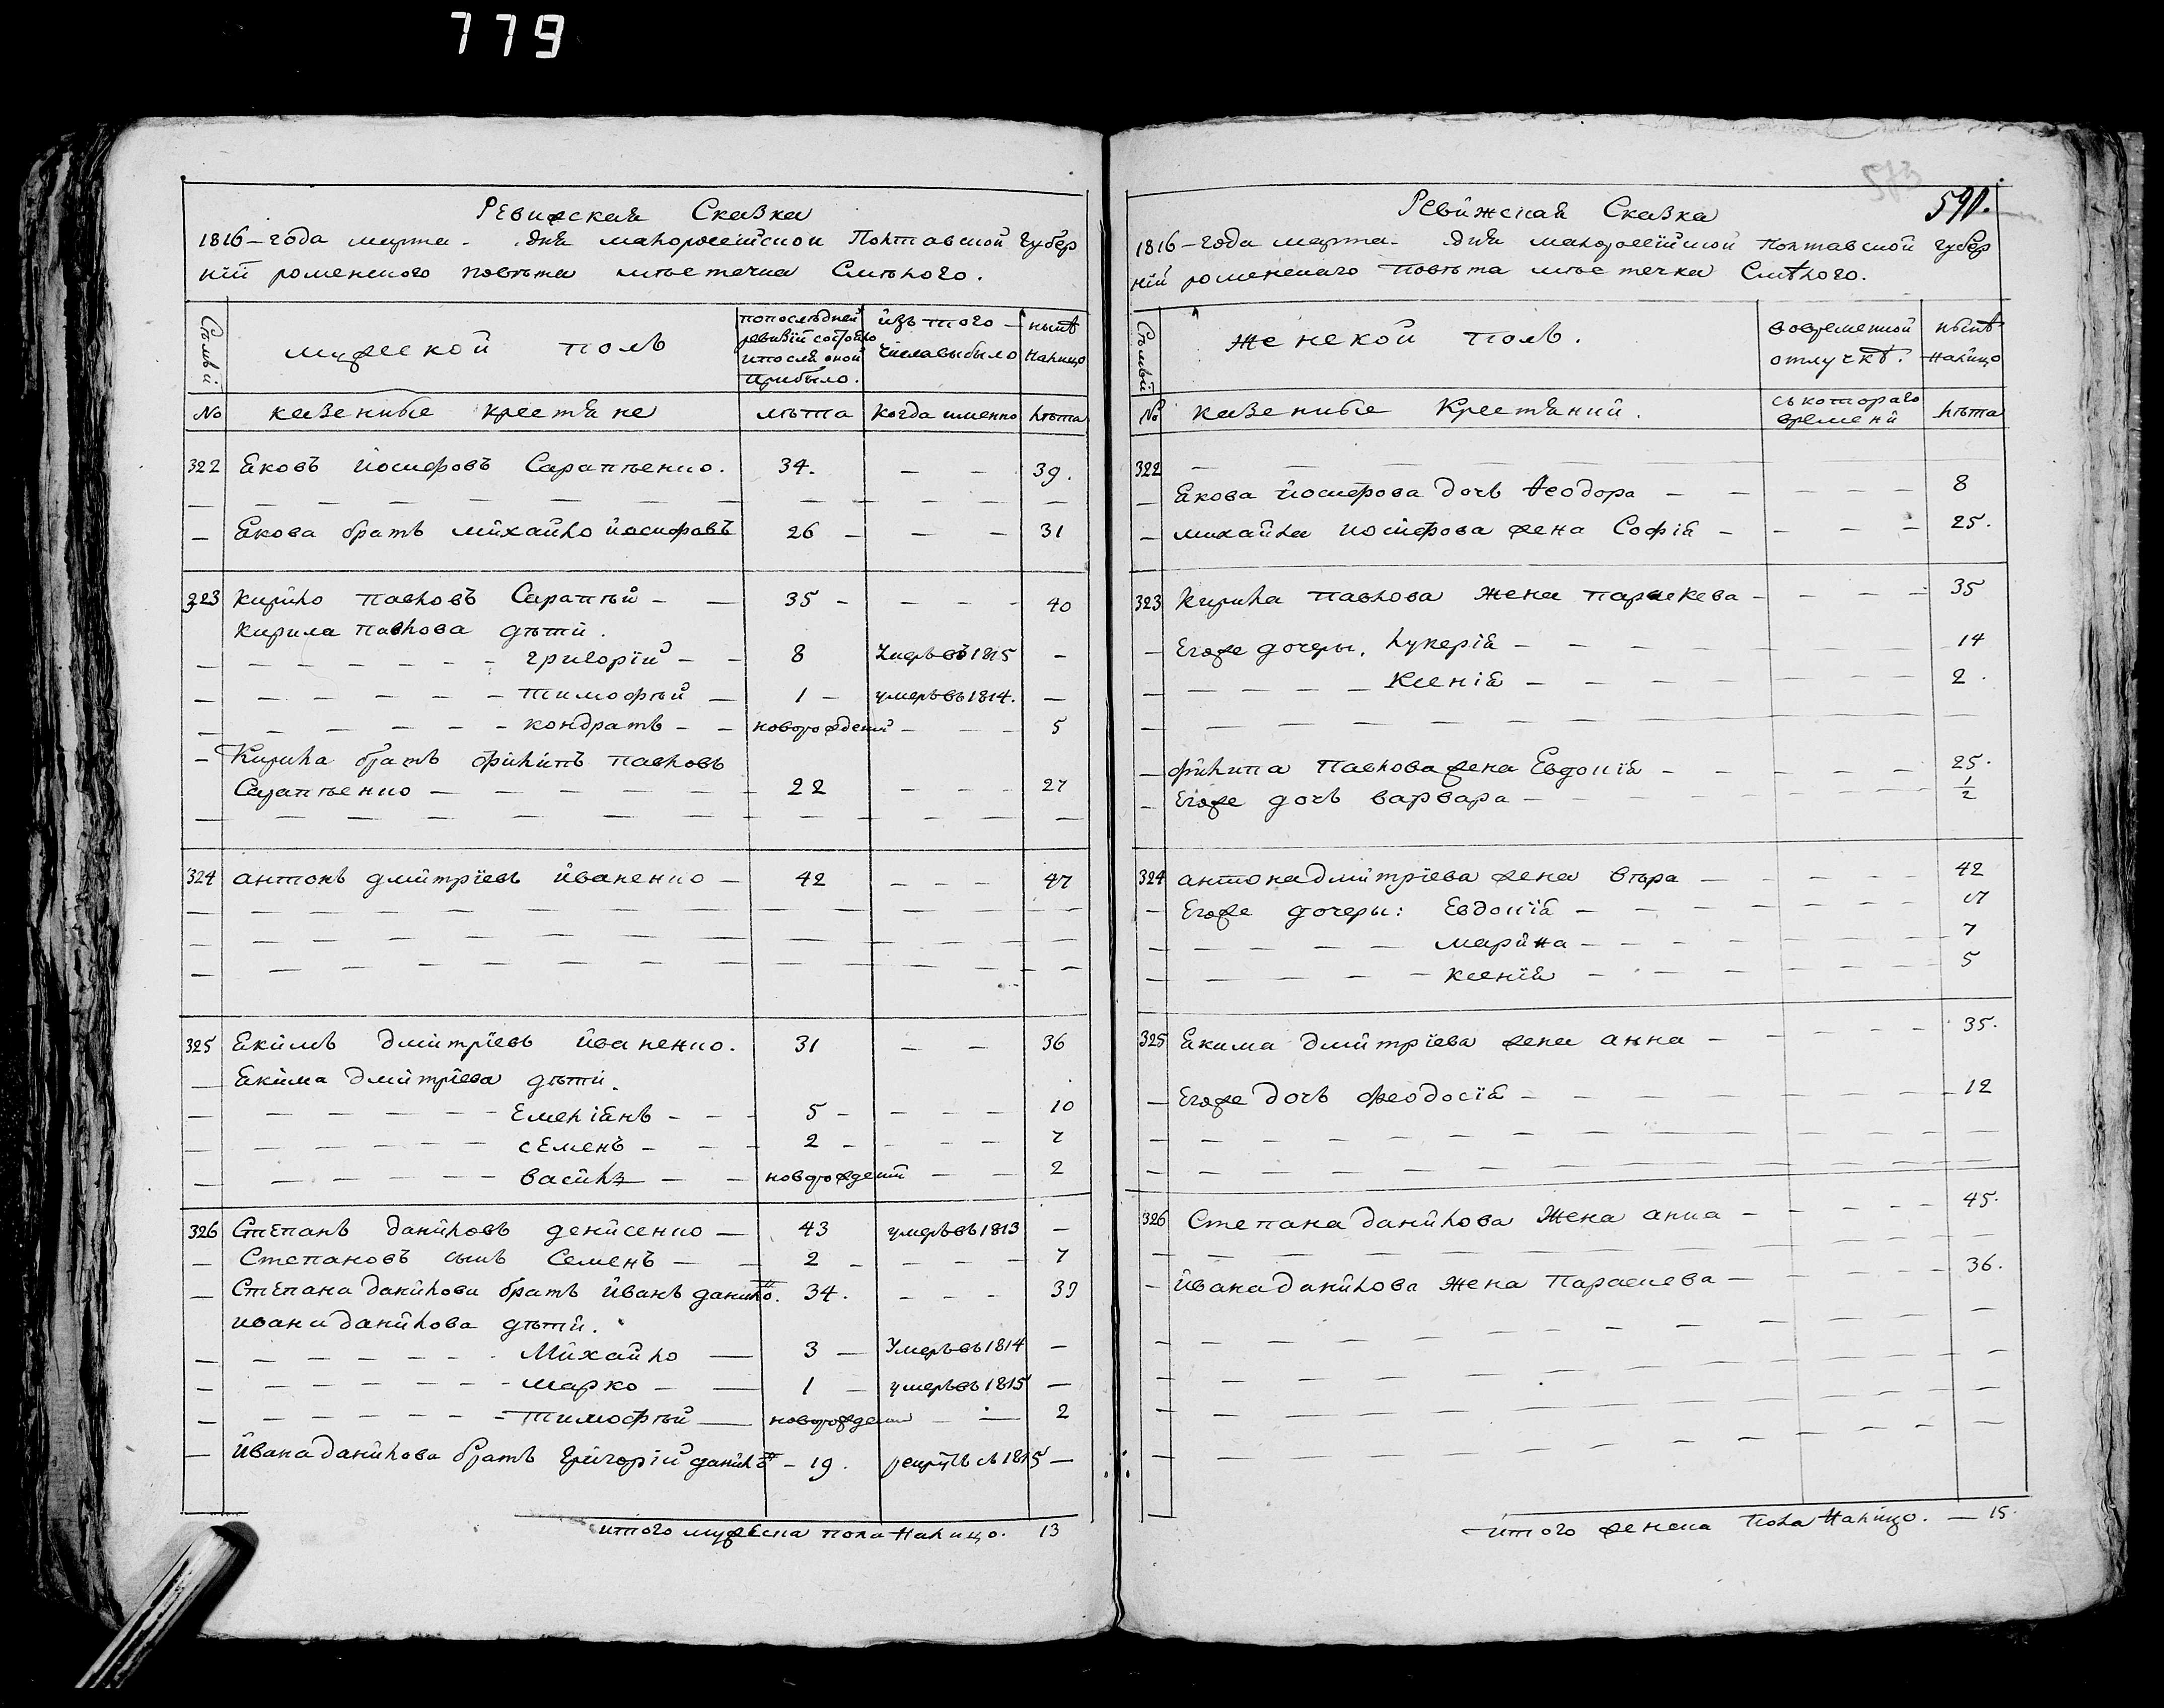 779
Ревижская Сказка
1816 - года марта - дня малоросейской Полтавской губер
ній роменского повѣта мѣстечка Смѣлого.
Семьи
мужеской полъ
попослѣдней ревизій состояло ипослѣ оной прибыло.
изъ того числавыбыло
нынѣ налицо
No казенные крестяне лѣта когда именно лѣта
322 Яковъ Йосифовъ Сарапѣенко. 34. — — 39.
— Якова братъ михайло йосифовъ 26 — — — 31
323 Кирило павловъ Сарапѣй — — 35 — — — — 40
Кирила павлова дѣти.
— григорій — — 8 Умеръ въ 1815 —
— тимофѣй — 1 — умеръ въ 1814. —
— кондратъ — — новорожденій — — — 5
— Кирила братъ филипъ павловъ
Сарапѣенко — 22 — — — 27
324 антонъ дмитріевъ йваненко — 42 — — — 47
325 Якимъ дмитріевъ йваненко. 31 — — 36
— Якима дмитріева дѣти.
— Емеліянъ — — — 5 — — — — 10
— семенъ — — — 2 — — — — 7
— василь — — новорожденій — — 2
326 Степанъ данйловъ денисенко — 43 умеръ въ 1813 —
— Степановъ сынъ Семенъ — — 2 — — — — 7
— Степана данйлова братъ йванъ данило. 34. — — — 39
ивана данйлова дѣти.
— Михайло — 3 — Умеръ въ 1814 —
— марко — — 1 — умеръ въ 1815 —
— тимофѣй — новорожденій — — 2
— йвана данйлова братъ григорій данилъ — 19. рекрутъ съ 1815 —
итого мужеска пола налицо. 13
573
591.
Ревижская Сказка
1816 - года марта - дня малоросейской полтавской губер
ній роменскаго повѣта мѣстечка Смѣлого.
Семьи
женской полъ.
вовременной отлучкѣ.
нынѣ налицо
No казенные Крестяній. съ котораго времени лѣта
322
— Якова йосифова дочь Ѳеодора — — — — — 8
— михайла йосифова жена Софія — — — — 25.
323 Кирила павлова жена параскева — — — — 35
— Егоже дочеры, лукерія — 14
— Ксенія — 2.
— филипа павлова жена Евдокія — 25.
— Егоже дочь варвара — 1/2
324 антона дмитріева жена вѣра — 42
— Егоже дочеры: Евдокія — 17
— марйна — 7
— ксенія — 5
325 Якима дмитріева жена анна — 35.
— Егоже дочь феодосія — 12
326 Степана данйлова жена анна — 45.
— йвана данйлова жена параскева — 36.
итого женска пола налицо. — 15.